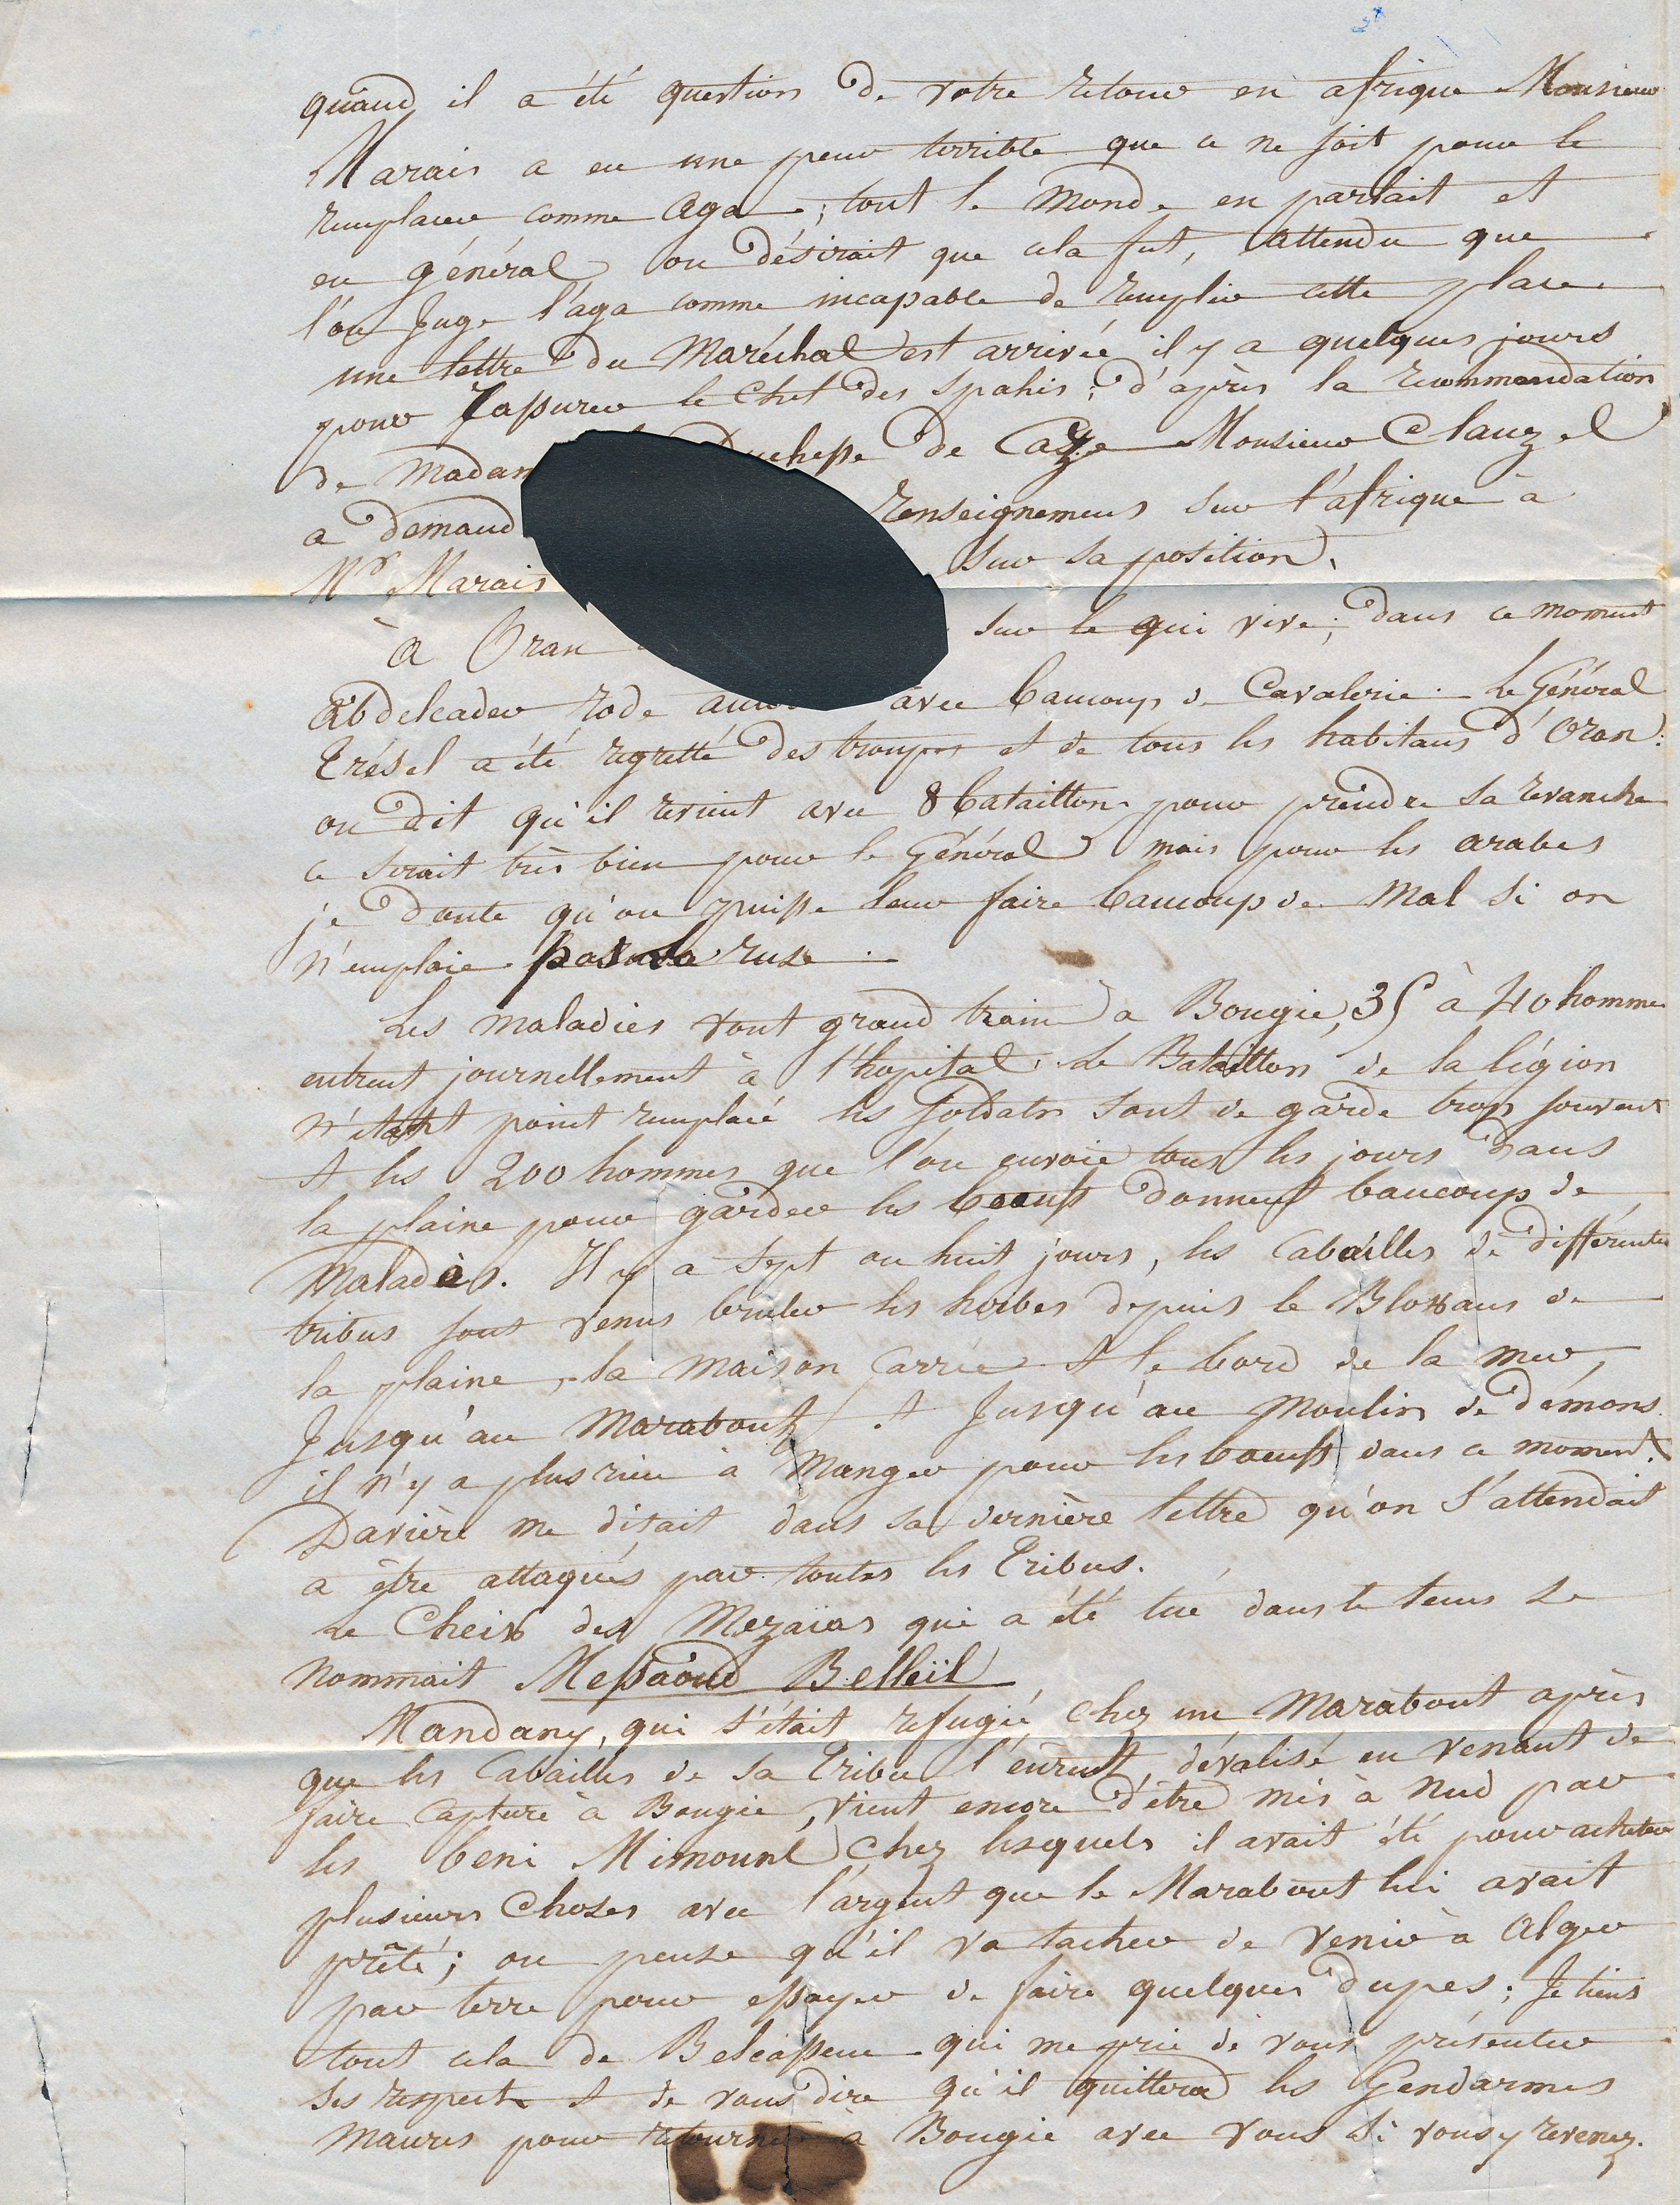 quand il a été question de votre retour en afrique Monsieur
Marais a eu une peur terrible que ce ne soit pour le
remplacer comme aga ; tout le monde en parlait et
en général on désirait que cela fut, attendu que
l'on juge l'aga comme incapable de remplir cette place
une lettre du Maréchal est arrivée il y a quelques jours
pour rassurer le chef des spahis ; d'après la recommandation
de Madam duchesse de Monsieur Clauzel
a demand renseignemens sur l'afrique à
Mr Marais sur sa position.
à Oran sur le qui vive ; dans ce moment
Abdelcader rode avec beaucoup de Cavalerie . le Général
Trésel a été regretté des troupes et de tous les habitans d'Oran :
on dit qu'il revient avec 8 bataillons pour prendre sa revanche
ce serait très bien pour le Général mais pour les arabes
je doute qu'on puisse leur faire beaucoup de mal si on
n'emploie pas la ruse .
Les maladies vont grand train a Bougie, 35 à 40 hommes
entrent journellement à l'hopital . Le Bataillon de la légion
n'étant point remplacé les soldats sont de garde trop souvent
et les 200 hommes que l'on envoie tous les jours dans
la plaine pour garder les boeufs donnent beaucoup de
malades. Il y a sept ou huit jours, les Cabailles de différentes
tribus sont venus bruler les herbes depuis le Bloxaus de
la plaine, la maison Carrée et le bord de la mer,
jusqu'au Marabout et jusqu'au moulin de démons
il n'y a plus rien à manger pour les boeufs dans ce moment.
Davière me disait dans sa dernière lettre qu'on s'attendait
a être attaqués par toutes les Tribus.
Le Cheix des Mezaias qui a été tué dans le tems se
nommait Messaoud Belleïl
Mandany, qui s'était refugié chez un Marabout après
que les Cabailles de sa Tribu l'eurent dévalisé en venant de
faire capture à Bougie, vient encore d'être mis à nud par
les beni Mimounl chez lesquels il avait été pour acheter
plusieurs choses avec l'argent que le Marabout lui avait
prêté ; on pense qu'il va tacher de venir à Alger
par terre pour essayer de faire quelques dupes ; Je tiens
tout cela de Belcassem qui me prie de vous présenter
ses respects et de vous dire qu'il quittera les Gendarmes
maures pour retourner à Bougie avec vous si vous y revenez.